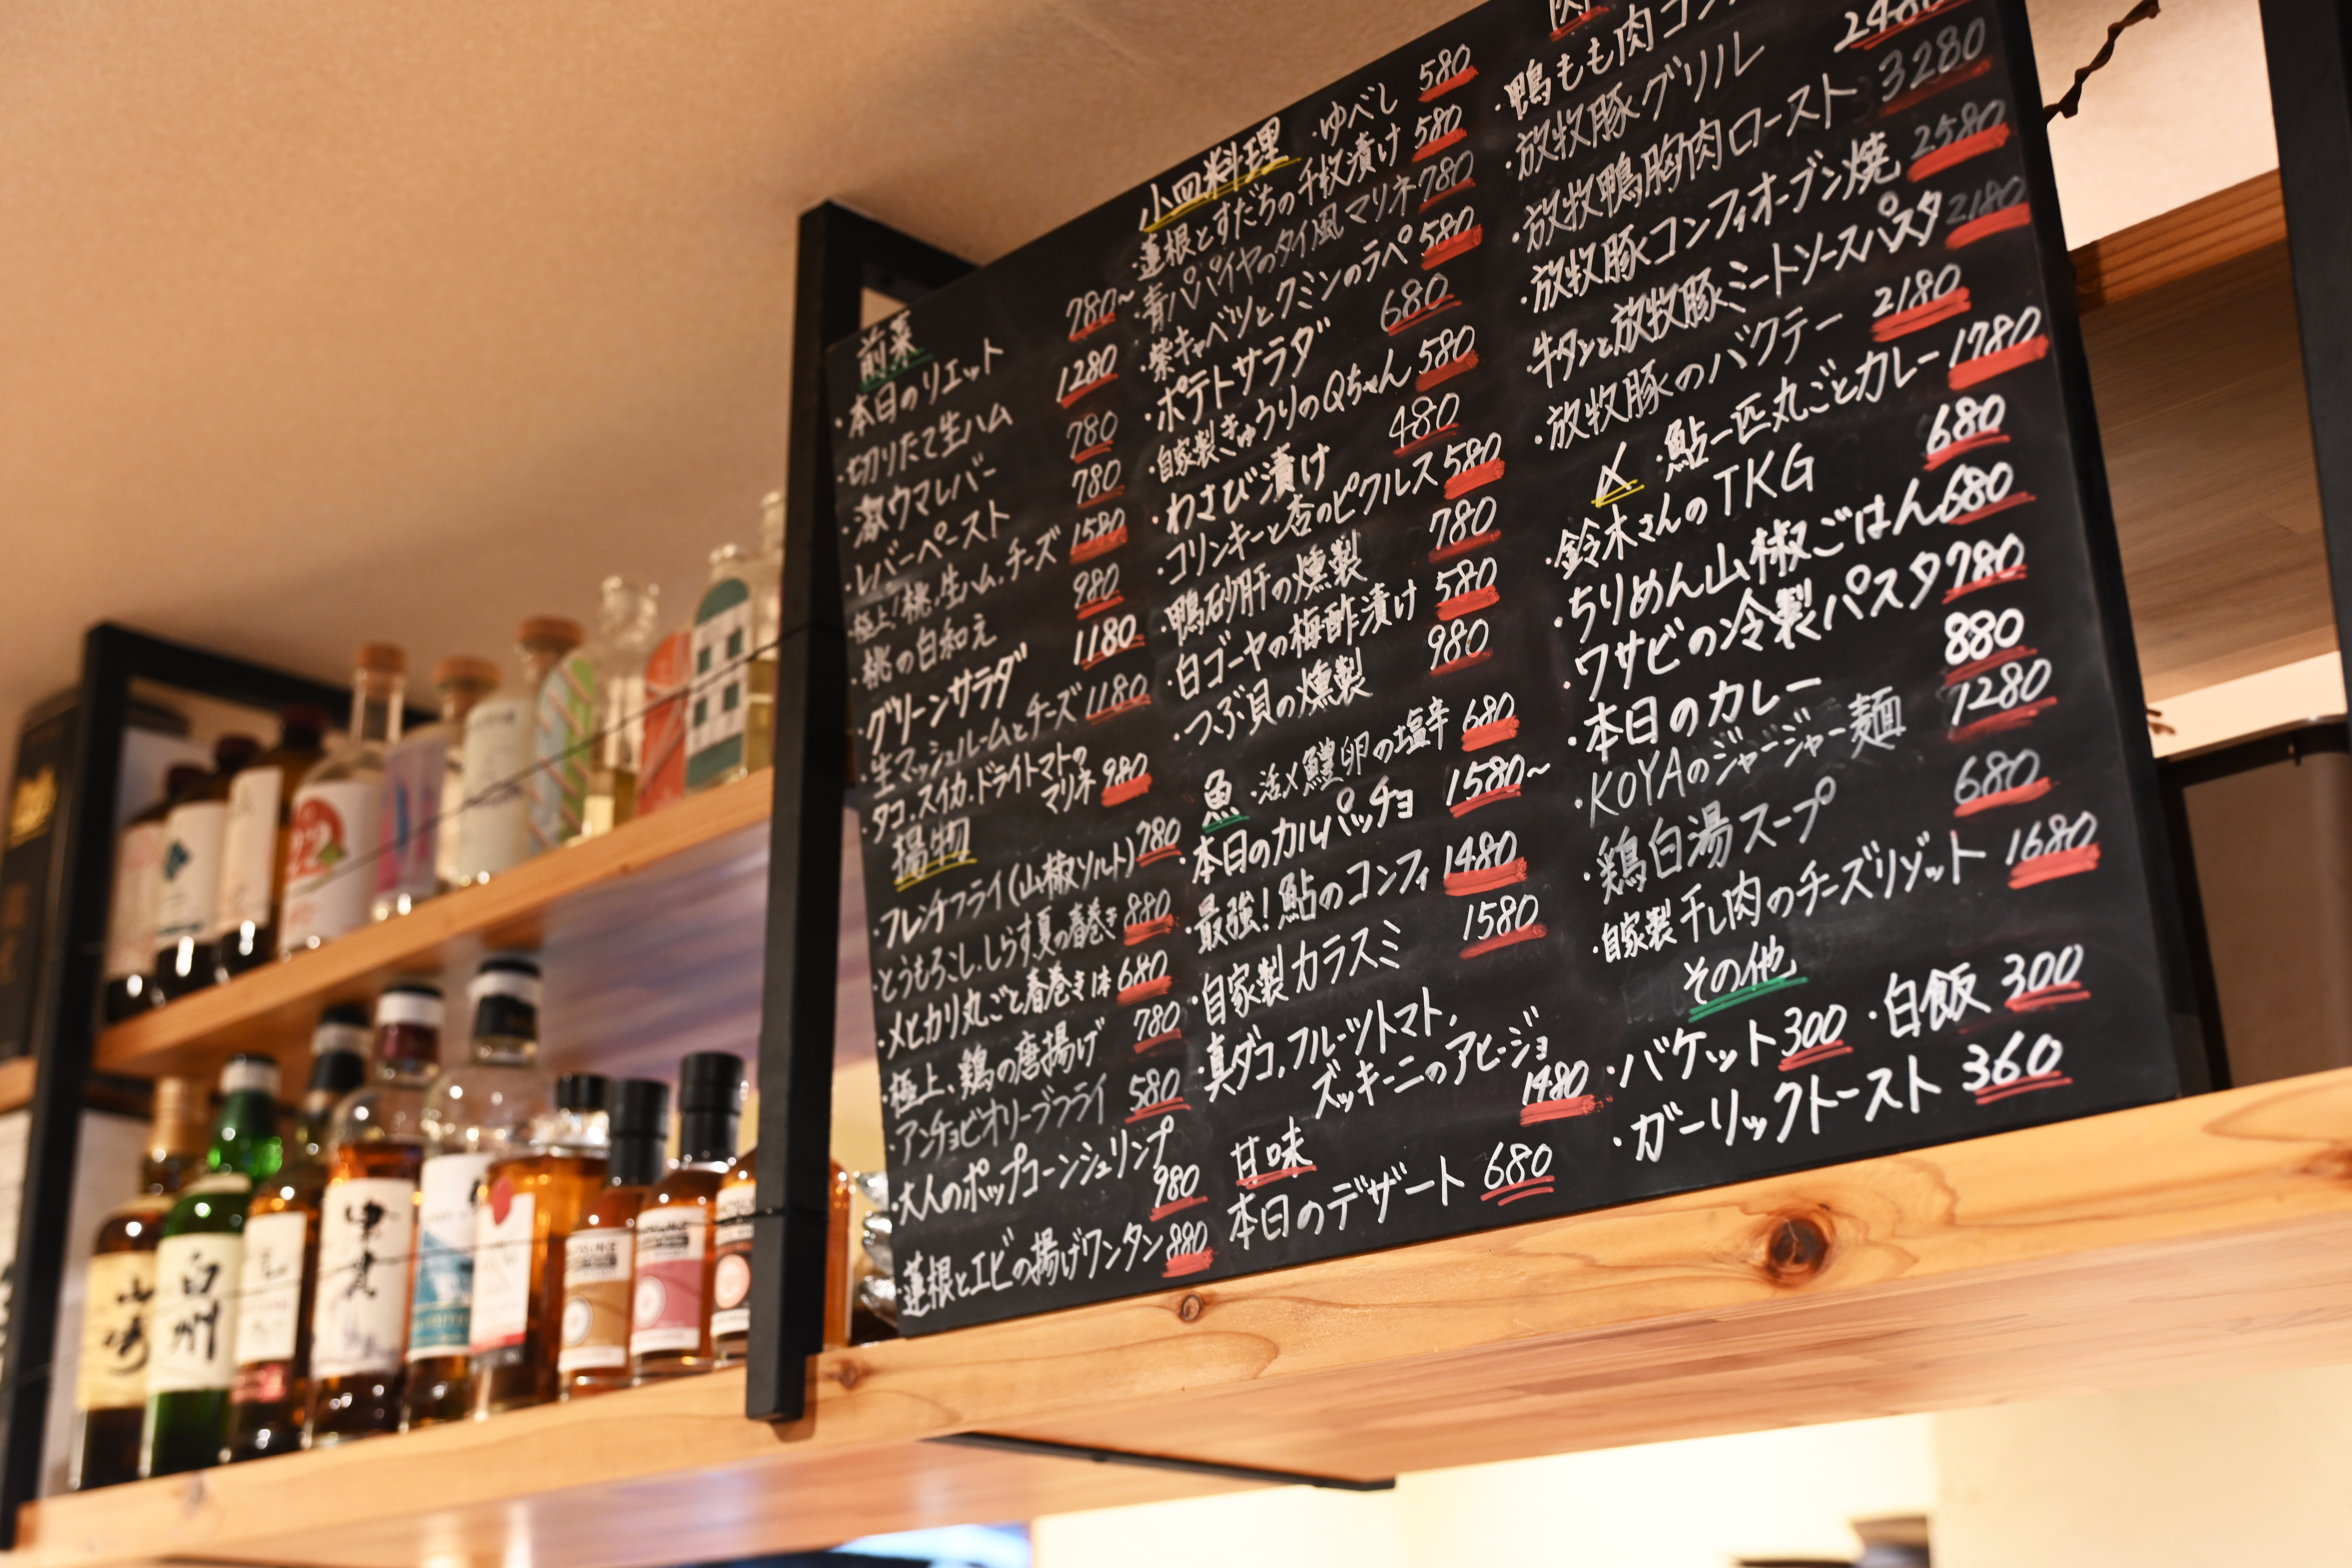 前菜
・本日のリエット 780~
・切りたて生ハム 1280
・激ウマレバー 780
・レバーペースト 780
・極上!桃,生ハム,チーズ 1580
・桃の白和え 980
・グリーンサラダ 1180
・生マッシュルームとチーズ 1180
・タコ,スイカ,ドライトマトの
マリネ 980
揚物
・フレンチフライ(山椒ソルト) 780
・とうもろこし,しらす夏の春巻き 880
・メヒカリ丸ごと春巻き1本 680
・極上,鶏の唐揚げ 780
・アンチョビオリーブフライ 580
・大人のポップコーンシュリンプ
980
・蓮根とエビの揚げワンタン 880
小皿料理 ・ゆべし 580
・蓮根とすだちの千枚漬け 580
・青パパイヤのタイ風マリネ 780
・紫キャベツとクミンのラペ 580
・ポテトサラダ 680
・自家製きゅうりのQちゃん 580
・わさび漬け 480
・コリンキーと杏のピクルス 580
・鴨砂肝の燻製 780
・白ゴーヤの梅酢漬け 580
・つぶ貝の燻製 980
魚 ・活〆鱧卵の塩辛 680
・本日のカルパッチョ 1580~
・最強!鮎のコンフィ 1480
・自家製カラスミ 1580
・真ダコ,フルーツトマト,
ズッキーニのアヒージョ
1480
甘味
本日のデザート 680
肉
・鴨もも肉コンフ 2480
・放牧豚グリル 3280
・放牧鴨胸肉ロースト 2580
・放牧豚コンフィオーブン焼 2180
・牛タンと放牧豚ミートソースパスタ 2180
・放牧豚のバクテー 1780
〆 ・鮎一匹丸ごとカレー 680
・鈴木さんのTKG 680
・ちりめん山椒ごはん 780
・ワサビの冷製パスタ 880
・本日のカレー 1280
・KOYAのジャージャー麺 680
・鶏白湯スープ 1680
・自家製干し肉のチーズリゾット
その他
・バケット 300 ・白飯 300
・ガーリックトースト 360
山崎
白州